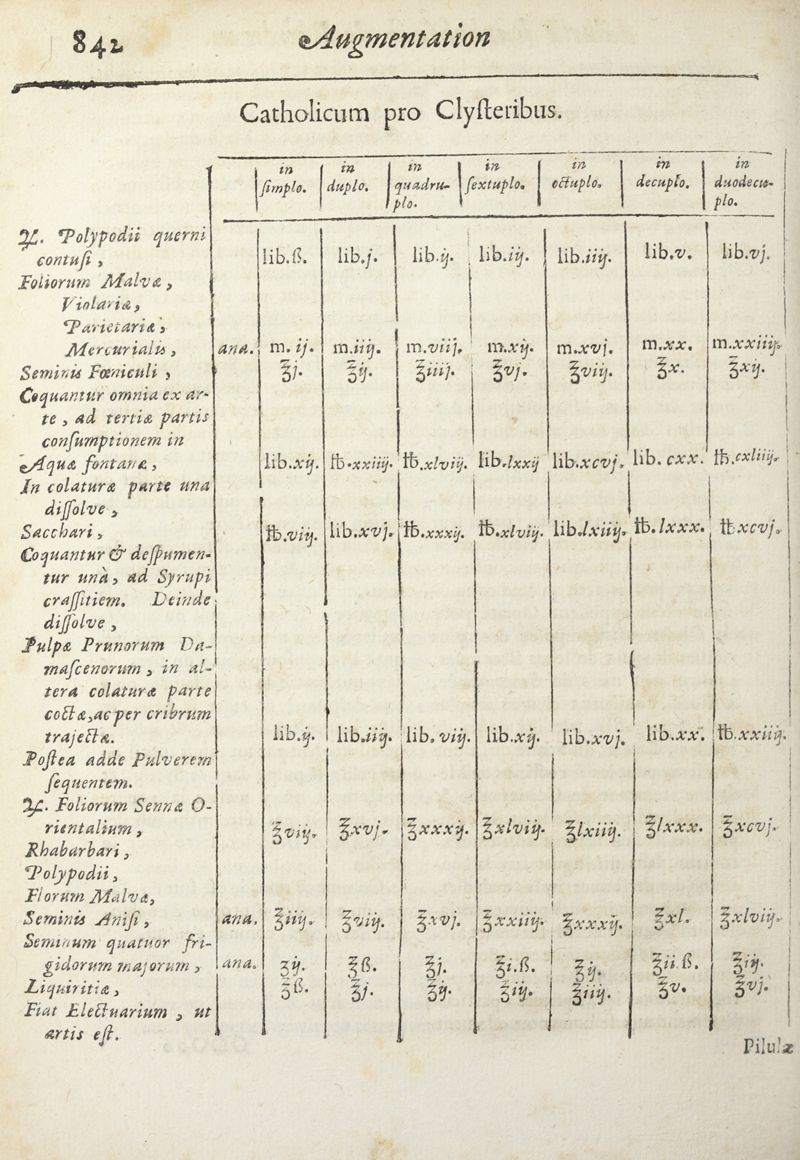 842 Augmentation
Catholicum pro Clyſteribus.
in ſimplo. | in duplo. | in quadruplo. | in ſextuplo. | in octuplo. | in decuplo. | in duodecuplo.
℞. Polypodii querni
contuſi , lib.ß. lib.j. lib.ij. lib.iij. lib.iiij. lib.v. lib.vj.
Foliorum Malvæ ,
Violariæ ,
Parietariæ ,
Mercurialis , ana. m. ij. m.iiij. m.viij. m.xij. m.xvj. m.xx. m.xxiiij.
Seminis Fœniculi , ℥j. ℥ij. ℥iiij. ℥vj. ℥viij. ℥x. ℥xij.
Coquantur omnia ex ar-
te , ad tertiæ partis
conſumptionem in
Aquæ fontanæ , lib.xij. ℔.xxiiij. ℔.xlviij. lib.lxxij lib.xcvj. lib. cxx. ℔.cxliiij.
In colaturæ parte una
diſſolve ,
Sacchari , ℔.viij. lib.xvj. ℔.xxxij. ℔.xlviij. lib.lxiiij. ℔.lxxx. ℔xcvj.
Coquantur & deſpumen-
tur unà , ad Syrupi
craſſitiem. Deinde
diſſolve ,
Pulpæ Prunorum Da-
maſcenorum , in al-
tera colaturæ parte
coctæ,ac per cribrum
trajectæ. lib.ij. lib.iiij. lib. viij. lib.xij. lib.xvj. lib.xx. ℔.xxiiij.
Poſtea adde Pulverem
ſequentem.
℞. Foliorum Sennæ O-
rientalium , ℥viij. ℥xvj. ℥xxxij. ℥xlviij. ℥lxiiij. ℥lxxx. ℥xcvj.
Rhabarbari ,
Polypodii ,
Florum Malvæ,
Seminis Aniſi , ana. ℥iiij. ℥viij. ℥xvj. ℥xxiiij. ℥xxxij. ℥xl. ℥xlviij.
Seminum quatuor fri-
gidorum majorum , ana. ʒij. ℥ß. ℥j. ℥i.ß. ℥ij. ℥ii.ß. ℥iij.
Liquiritiæ , ℥ß. ℥j. ℥ij. ℥iij. ℥iiij. ℥v. ℥vj.
Fiat Electuarium , ut
artis eſt.
Pilulæ